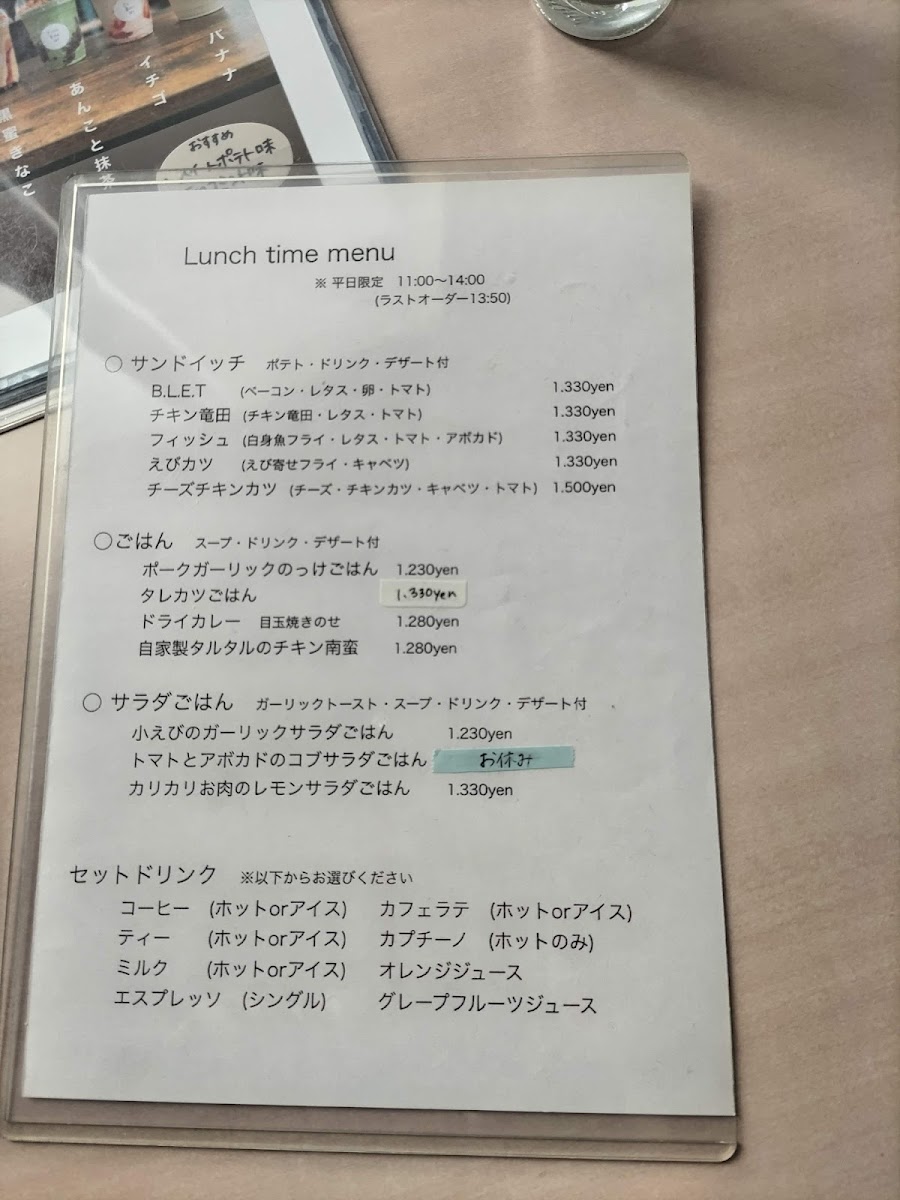 バナナ
イチゴ
あんこと抹茶
黒蜜きなこ
おすすめ
スイートポテト味
Lunch time menu
※ 平日限定 11:00〜14:00
(ラストオーダー13:50)
○ サンドイッチ ポテト・ドリンク・デザート付
B.L.E.T (ベーコン・レタス・卵・トマト) 1.330yen
チキン竜田 (チキン竜田・レタス・トマト) 1.330yen
フィッシュ (白身魚フライ・レタス・トマト・アボカド) 1.330yen
えびカツ (えび寄せフライ・キャベツ) 1.330yen
チーズチキンカツ (チーズ・チキンカツ・キャベツ・トマト) 1.500yen
○ごはん スープ・ドリンク・デザート付
ポークガーリックのっけごはん 1.230yen
タレカツごはん 1.330yen
ドライカレー 目玉焼きのせ 1.280yen
自家製タルタルのチキン南蛮 1.280yen
○ サラダごはん ガーリックトースト・スープ・ドリンク・デザート付
小えびのガーリックサラダごはん 1.230yen
トマトとアボカドのコブサラダごはん お休み
カリカリお肉のレモンサラダごはん 1.330yen
セットドリンク ※以下からお選びください
コーヒー (ホットorアイス) カフェラテ (ホットorアイス)
ティー (ホットorアイス) カプチーノ (ホットのみ)
ミルク (ホットorアイス) オレンジジュース
エスプレッソ (シングル) グレープフルーツジュース